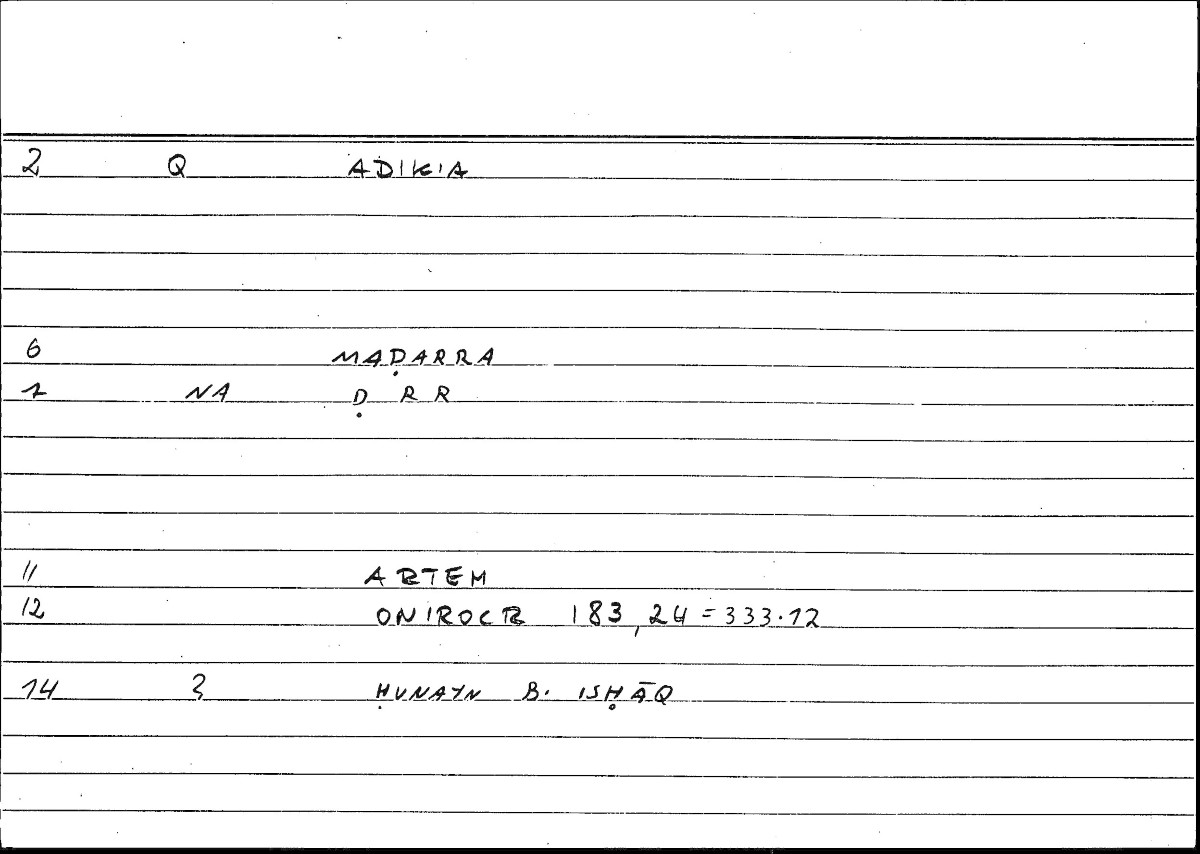 2 Q ADIKIA
6 MAḌARRA
7 NA Ḍ R R
11 ARTEM
12 ONIROCR 183,24=333.12
14 2 ḤUNAYN B. ISḤĀQ